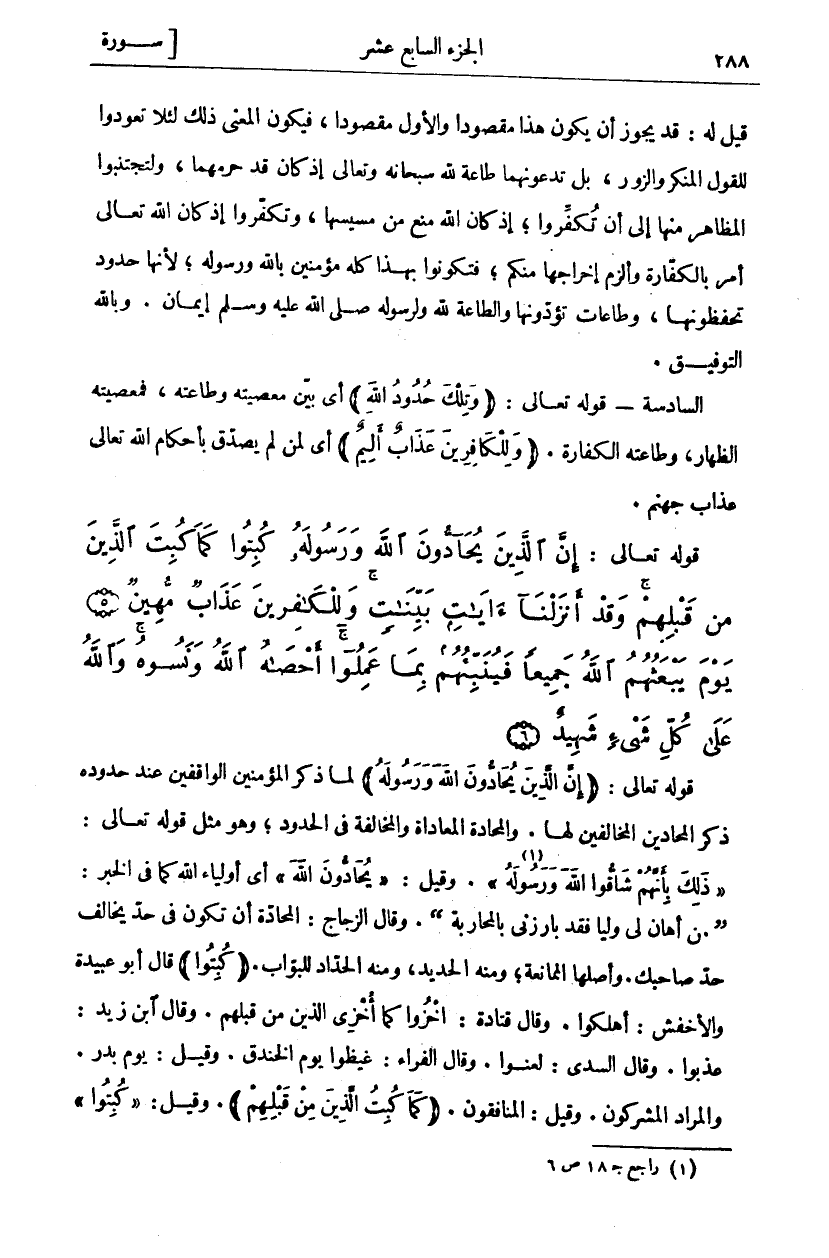 ٢٨٨ الجزء السابع عشر [ ســورة
قيل له : قد يجوز أن يكون هذا مقصودا والأول مقصودا ، فيكون المعنى ذلك لئلا تعودوا
للقول المنكر والزور ، بل تدعونهما طاعة لله سبحانه وتعالى إذ كان قد حرمهما ، ولتجتنبوا
المظاهر منها إلى أن تُكفِّروا ؛ إذ كان الله منع من مسيسها ، وتكفّروا إذ كان الله تعـالى
أمر بالكفّارة وألزم إخراجها منكم ؛ فتكونوا بهـذا كله مؤمنين بالله ورسوله ؛ لأنها حدود
تحفظونهـا ، وطاعات تؤدّونها والطاعة لله ولرسوله صلى الله عليه وسـلم إيمـان . وبالله
التوفيـق .
السادسة – قوله تعـالى : ﴿ وَتِلْكَ حُدُودُ اللَّهِ ﴾ أى بيّن معصيته وطاعته ، فمعصيته
الظهار، وطاعته الكفارة . ﴿ وَلِلْكَافِرِينَ عَذَابٌ أَلِيمٌ ﴾ أى لمن لم يصدّق بأحكام الله تعالى
عذاب جهنم .
قوله تعـالى : إِنَّ ٱلَّذِينَ يُحَآدُّونَ ٱللَّهَ وَرَسُولَهُۥ كُبِتُوا كَمَا كُبِتَ ٱلَّذِينَ
مِن قَبْلِهِمْ ۚ وَقَدْ أَنزَلْنَـآ ءَايَـٰتٍ بَيِّنَـٰتٍ ۚ وَلِلْكَـٰفِرِينَ عَذَابٌ مُّهِينٌ ۝٥
يَوْمَ يَبْعَثُهُمُ ٱللَّهُ جَمِيعًا فَيُنَبِّئُهُم بِمَـا عَمِلُوٓا ۚ أَحْصَـٰهُ ٱللَّهُ وَنَسُوهُ ۚ وَٱللَّهُ
عَلَىٰ كُلِّ شَىْءٍ شَهِيدٌ ۝٦
قوله تعالى : ﴿ إِنَّ الَّذِينَ يُحَادُّونَ اللَّهَ وَرَسُولَهُ ﴾ لمـا ذكر المؤمنين الواقفين عند حدوده
ذكر المحادين المخالفين لهـا . والمحادة المعاداة والمخالفة فى الحدود ؛ وهو مثل قوله تعـالى :
« ذَلِكَ بِأَنَّهُمْ شَاقُّوا اللَّهَ وَرَسُولَهُ (١) » . وقيل : « يُحَادُّونَ اللَّهَ » أى أولياء الله كما فى الخبر :
”من أهان لى وليا فقد بارزنى بالمحاربة “ . وقال الزجاج : المحادّة أن تكون فى حدّ يخالف
حدّ صاحبك . وأصلها الممانعة؛ ومنه الحديد، ومنه الحدّاد للبوّاب . ﴿ كُبِتُوا ﴾ قال أبو عبيدة
والأخفش : أهلكوا . وقال قتادة : اخْزُوا كما أُخْزِى الذين من قبلهم . وقال ٱبن زيد :
عذبوا . وقال السدى : لعنـوا . وقال الفراء : غيظوا يوم الخندق . وقيـل : يوم بدر .
والمراد المشركون . وقيل : المنافقون . ﴿ كَمَا كُبِتَ الَّذِينَ مِنْ قَبْلِهِمْ ﴾ . وقيـل : « كُبِتُوا »
(١) راجع جـ ١٨ ص ٦